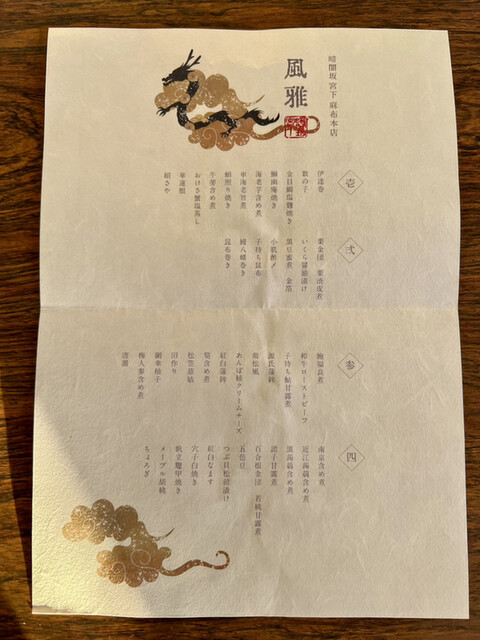 暗闇坂宮下 麻布本店
風雅
壱
伊達巻
数の子
金目鯛塩麹焼き
鰤南庵焼き
海老芋含め煮
車海老旨煮
鰆照り焼き
牛蒡含め煮
おけさ蟹塩蒸し
車蓮根
絹さや
弐
栗金団 栗渋皮煮
いくら醤油漬け
黒豆蜜煮 金箔
小肌酢〆
子持ち昆布
鰻八幡巻き
昆布巻き
参
鮑福良煮
和牛ローストビーフ
子持ち鮎甘露煮
源氏蒲鉾
鶏松風
あんぽ柿クリームチーズ
紅白蒲鉾
筍含め煮
松笠慈姑
田作り
網傘柚子
梅人参含め煮
唐墨
四
南京含め煮
近江蒟蒻含め煮
黒蒟蒻含め煮
諸子甘露煮
百合根金団 若桃甘露煮
五色豆
つぶ貝松前漬け
紅白なます
穴子白焼き
帆立鼈甲焼き
メープル胡桃
ちょろぎ